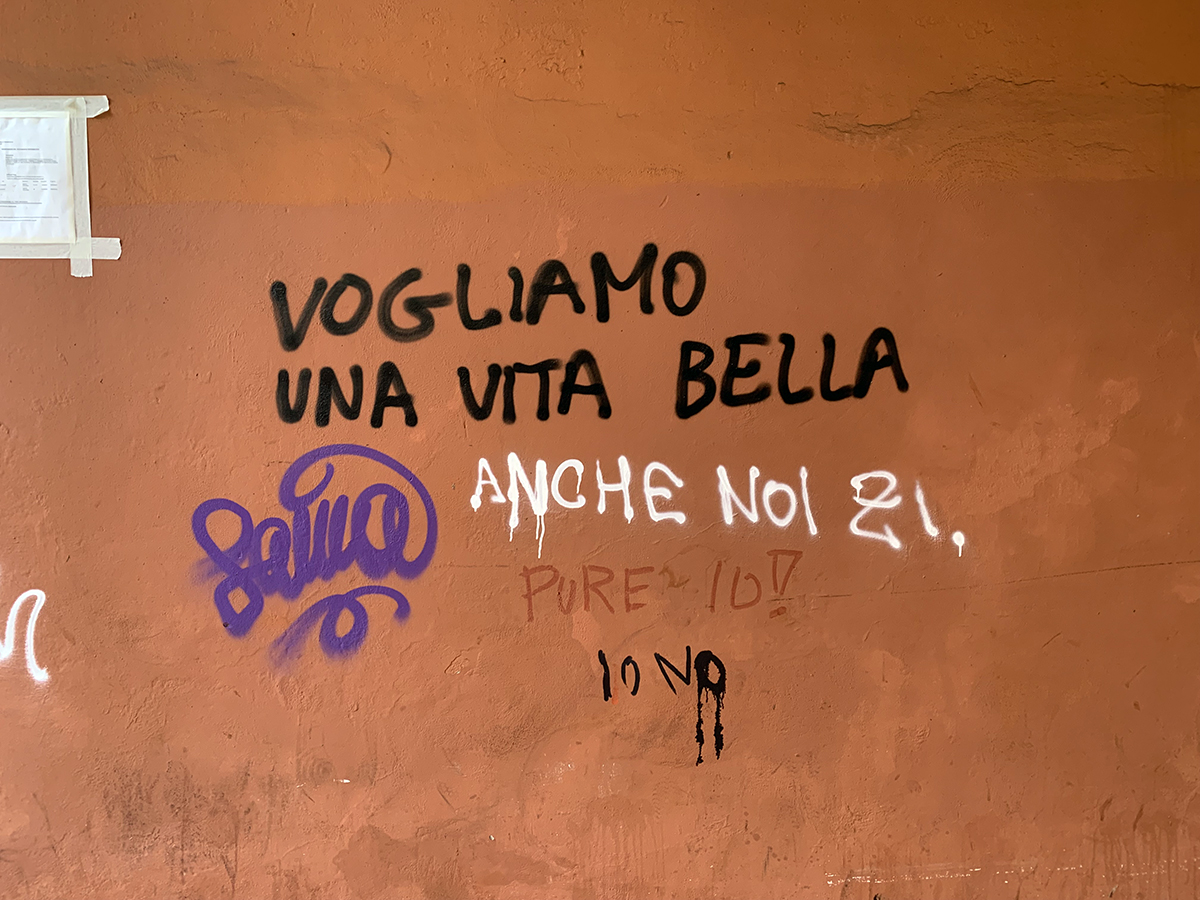 VOGLIAMO
UNA VITA BELLA
ANCHE NOI ZI.
PURE IO!
IO NO